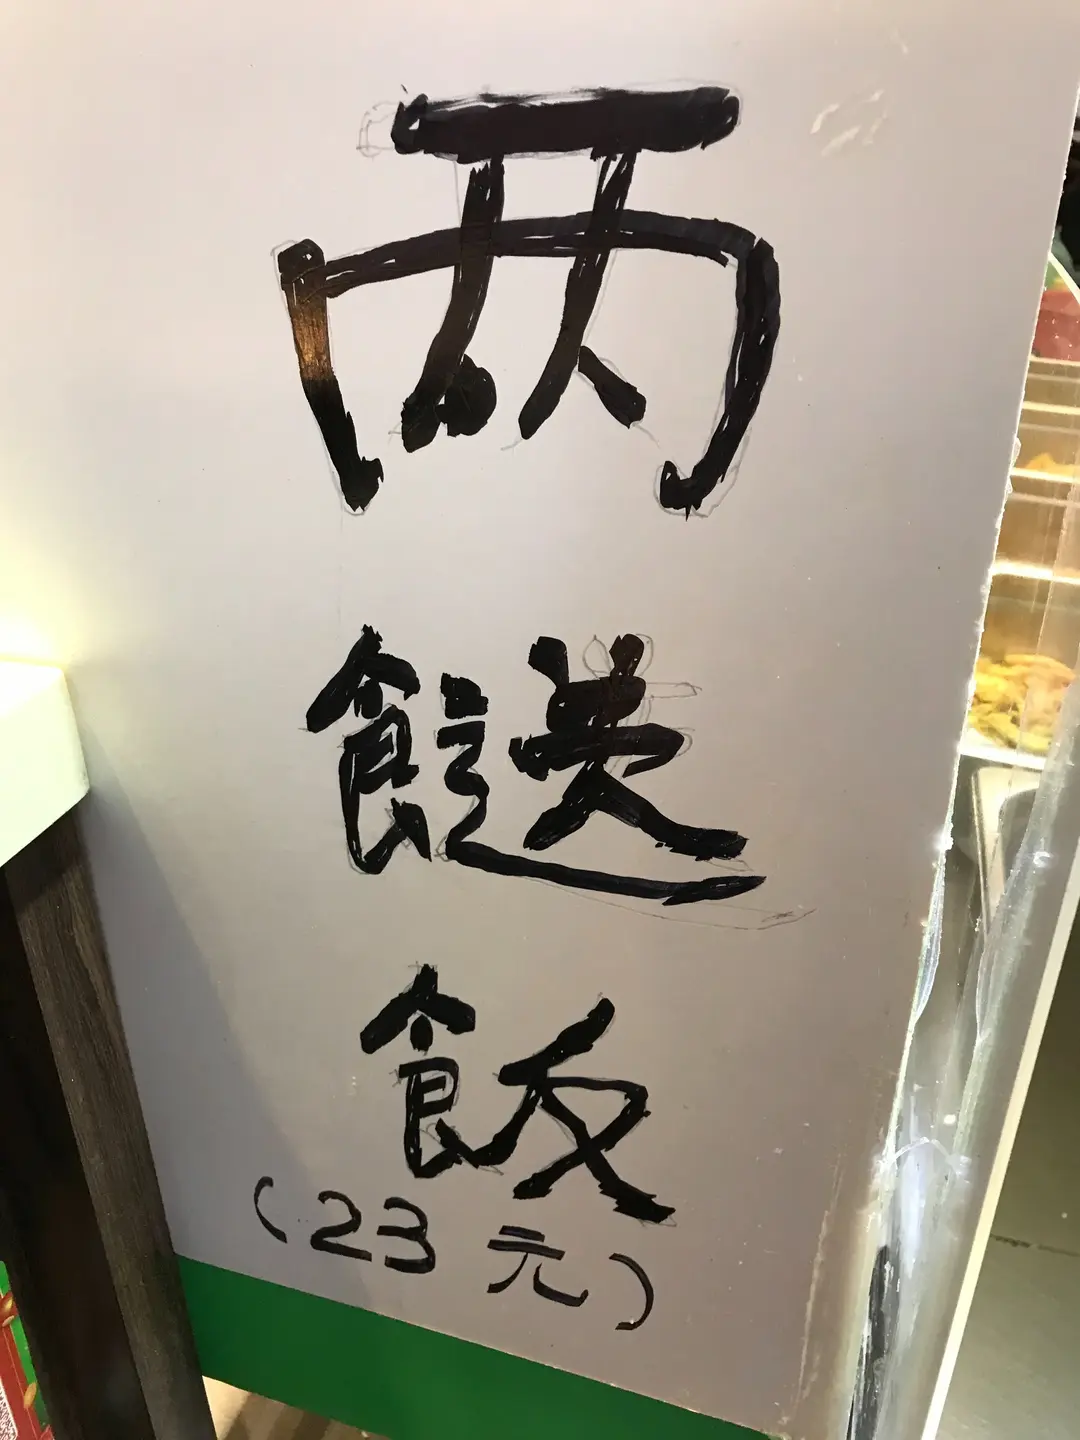 两
餸
飯
(23元)